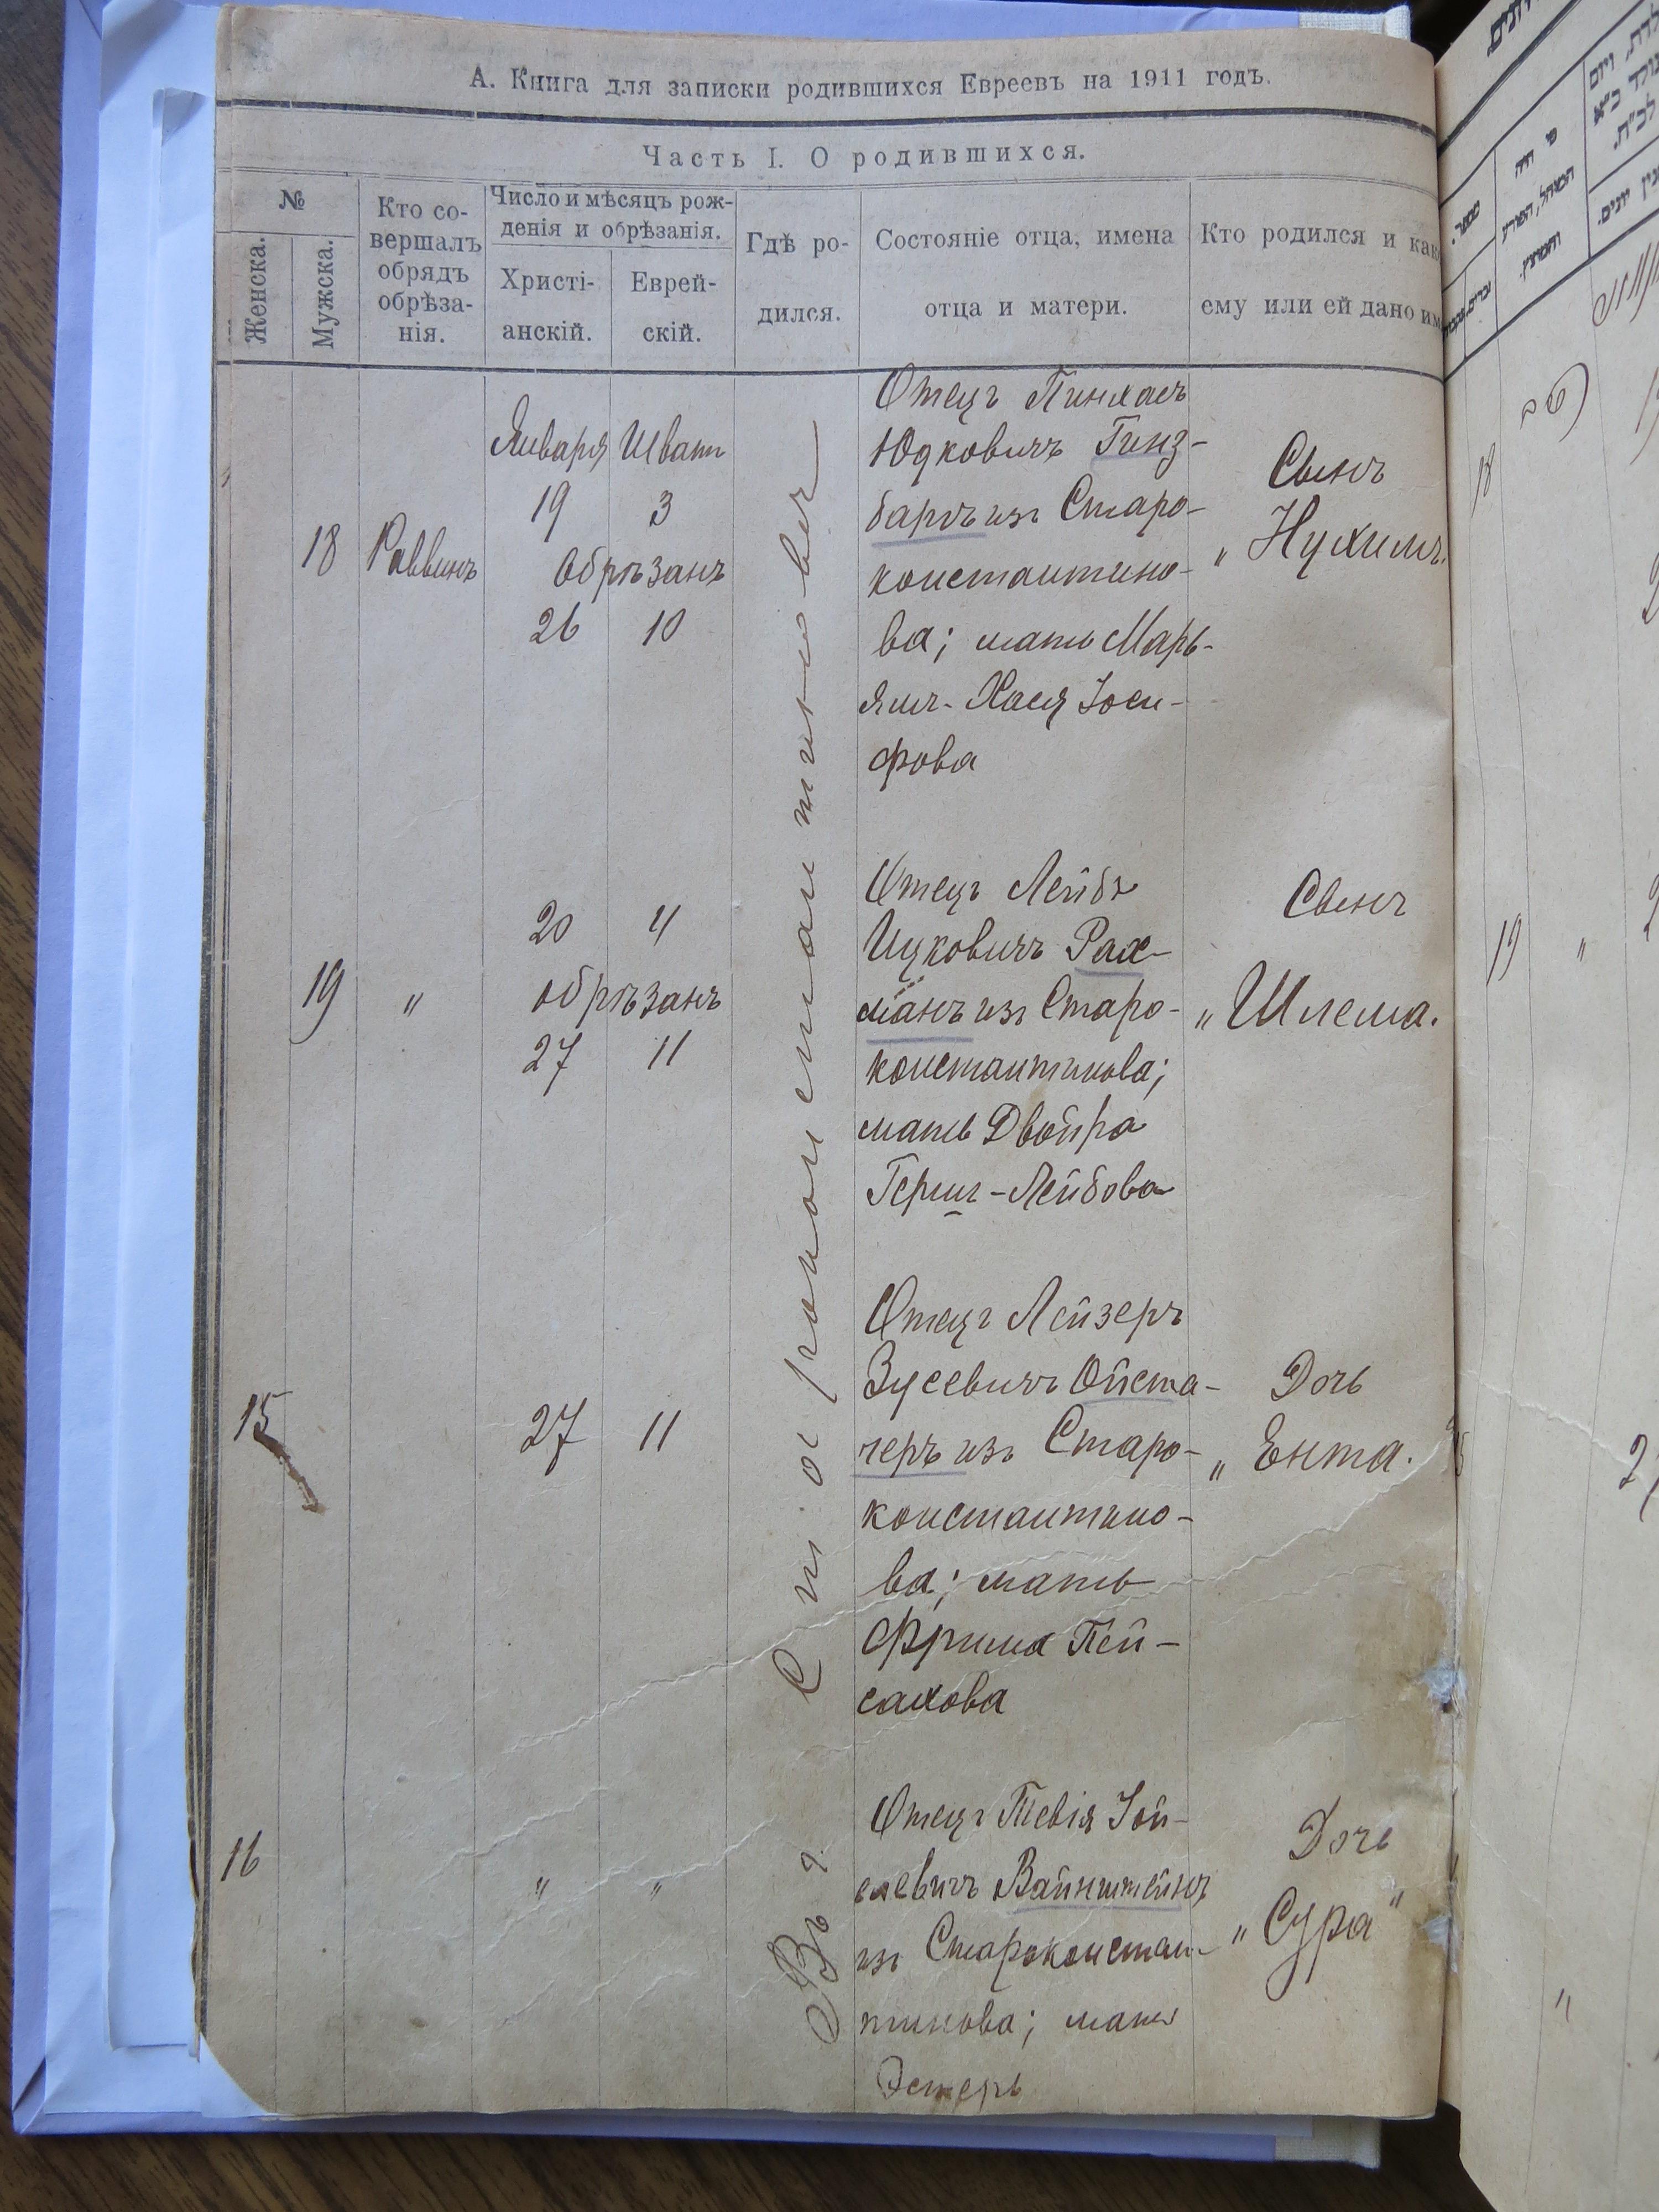 А. Книга для записки родившихся Евреевъ на 1911 годъ.
Часть I. О родившихся.
№
Женска.
Мужска.
Кто со-
вершалъ
обрядъ
обрѣза-
нія.
Число и мѣсяцъ рож-
денія и обрѣзанія.
Христі-
анскій.
Еврей-
скій.
Гдѣ ро-
дился.
Состояніе отца, имена
отца и матери.
Кто родился и как
ему или ей дано им
Въ г. Староконстантиновѣ
18
Раввинъ
Января Шватъ
19 3
Обрѣзанъ
26 10
Отецъ Пинхасъ
Юдковичъ Гинз-
баргъ изъ Старо-
константино-
ва; мать Марь-
ямъ-Хася Іоси-
фова
Сынъ
„Нухимъ.
19
"
20 4
обрѣзанъ
27 11
Отецъ Лейбъ
Ицковичъ Рах-
манъ изъ Старо-
константинова;
мать Двойра
Герш-Лейбова
Сынъ
„Шлема.
15
27 11
Отецъ Лейзеръ
Зусевичъ Ойста-
черъ изъ Старо-
константино-
ва; мать
Фрима Пей-
сахова
Дочь
„Ента.
16
" "
Отецъ Тевія Іой-
селевичъ Вайнштейнъ
изъ Староконстан-
тинова; мать
Эстеръ
Дочь
„Сура"
18
19
"
"